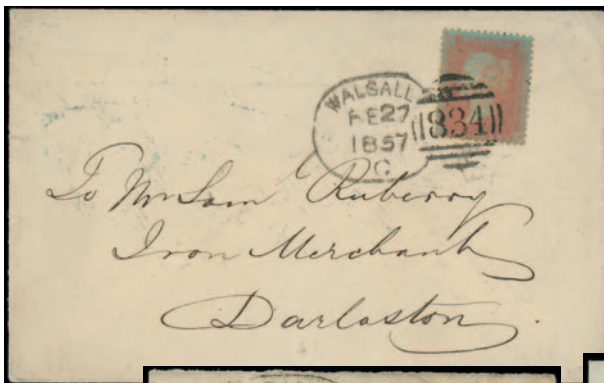 WALSALL
FE 27
1857
C
834
To Mr Sam Rubery
Iron Merchant
Darlaston.